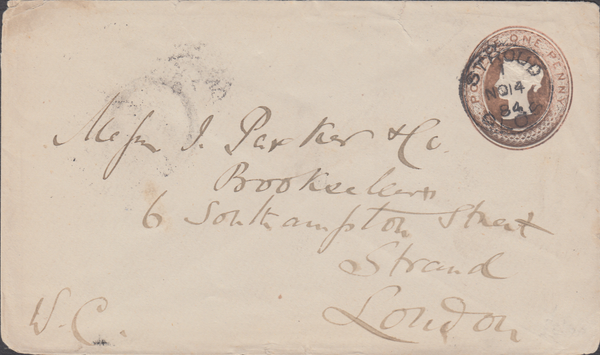 POSTAGE ONE PENNY
STROUD
NO 14
84
Messrs J. Parker & Co.
Booksellers
6 Southampton Street
Strand
London
W.C.